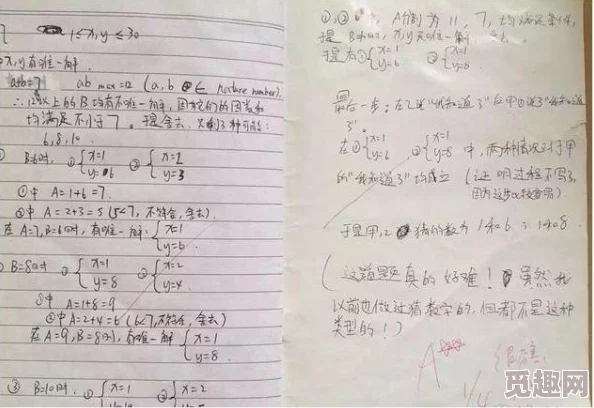 1≤x,y≤30
中x,y有唯一解.
a+b=7 ab max=12 (a,b ∈ nature number).
∴12以上的B均有不唯一解,因它们的因数和
均满足不小于7. 于是舍去,只剩3种可能:
6,8,10.
B=6时, ① {x=1 y=6 ② {x=2 y=3
①中 A=1+6=7.
②中 A=2+3=5 (5<7, 不符合,舍去).
在A=7,B=6时,有唯一解 {x=1 y=6.
② B=8时 ① {x=1 y=8 ② {x=2 y=4.
①中 A=1+8=9
②中A=2+4=6 (6<7,不符合,舍去)
在A=9,B=8时,有唯一解 {x=1 y=8.
③ B=10时. ① {x=1 ② {x=2
A 11, 7, 均满足条件,
于是 x,y 唯一解, 舍去.
于是有① {x=1 y=6 ② {x=1 y=8
最后一步: 在乙说“我知道了”后甲也说了“我知道
了”.
在① {x=1 y=6 ② {x=1 y=8 中, 两种情况对于甲
的“我知道了”均成立 (证明过程不写了,
因为这步比较容易)
于是甲,乙猜的数为 1和6 或 1和8.
(这道题真的好难! 虽然我
以前也做过猜数字的, 但都不是这种
类型的!)
A
很棒!
1/4
觅趣网